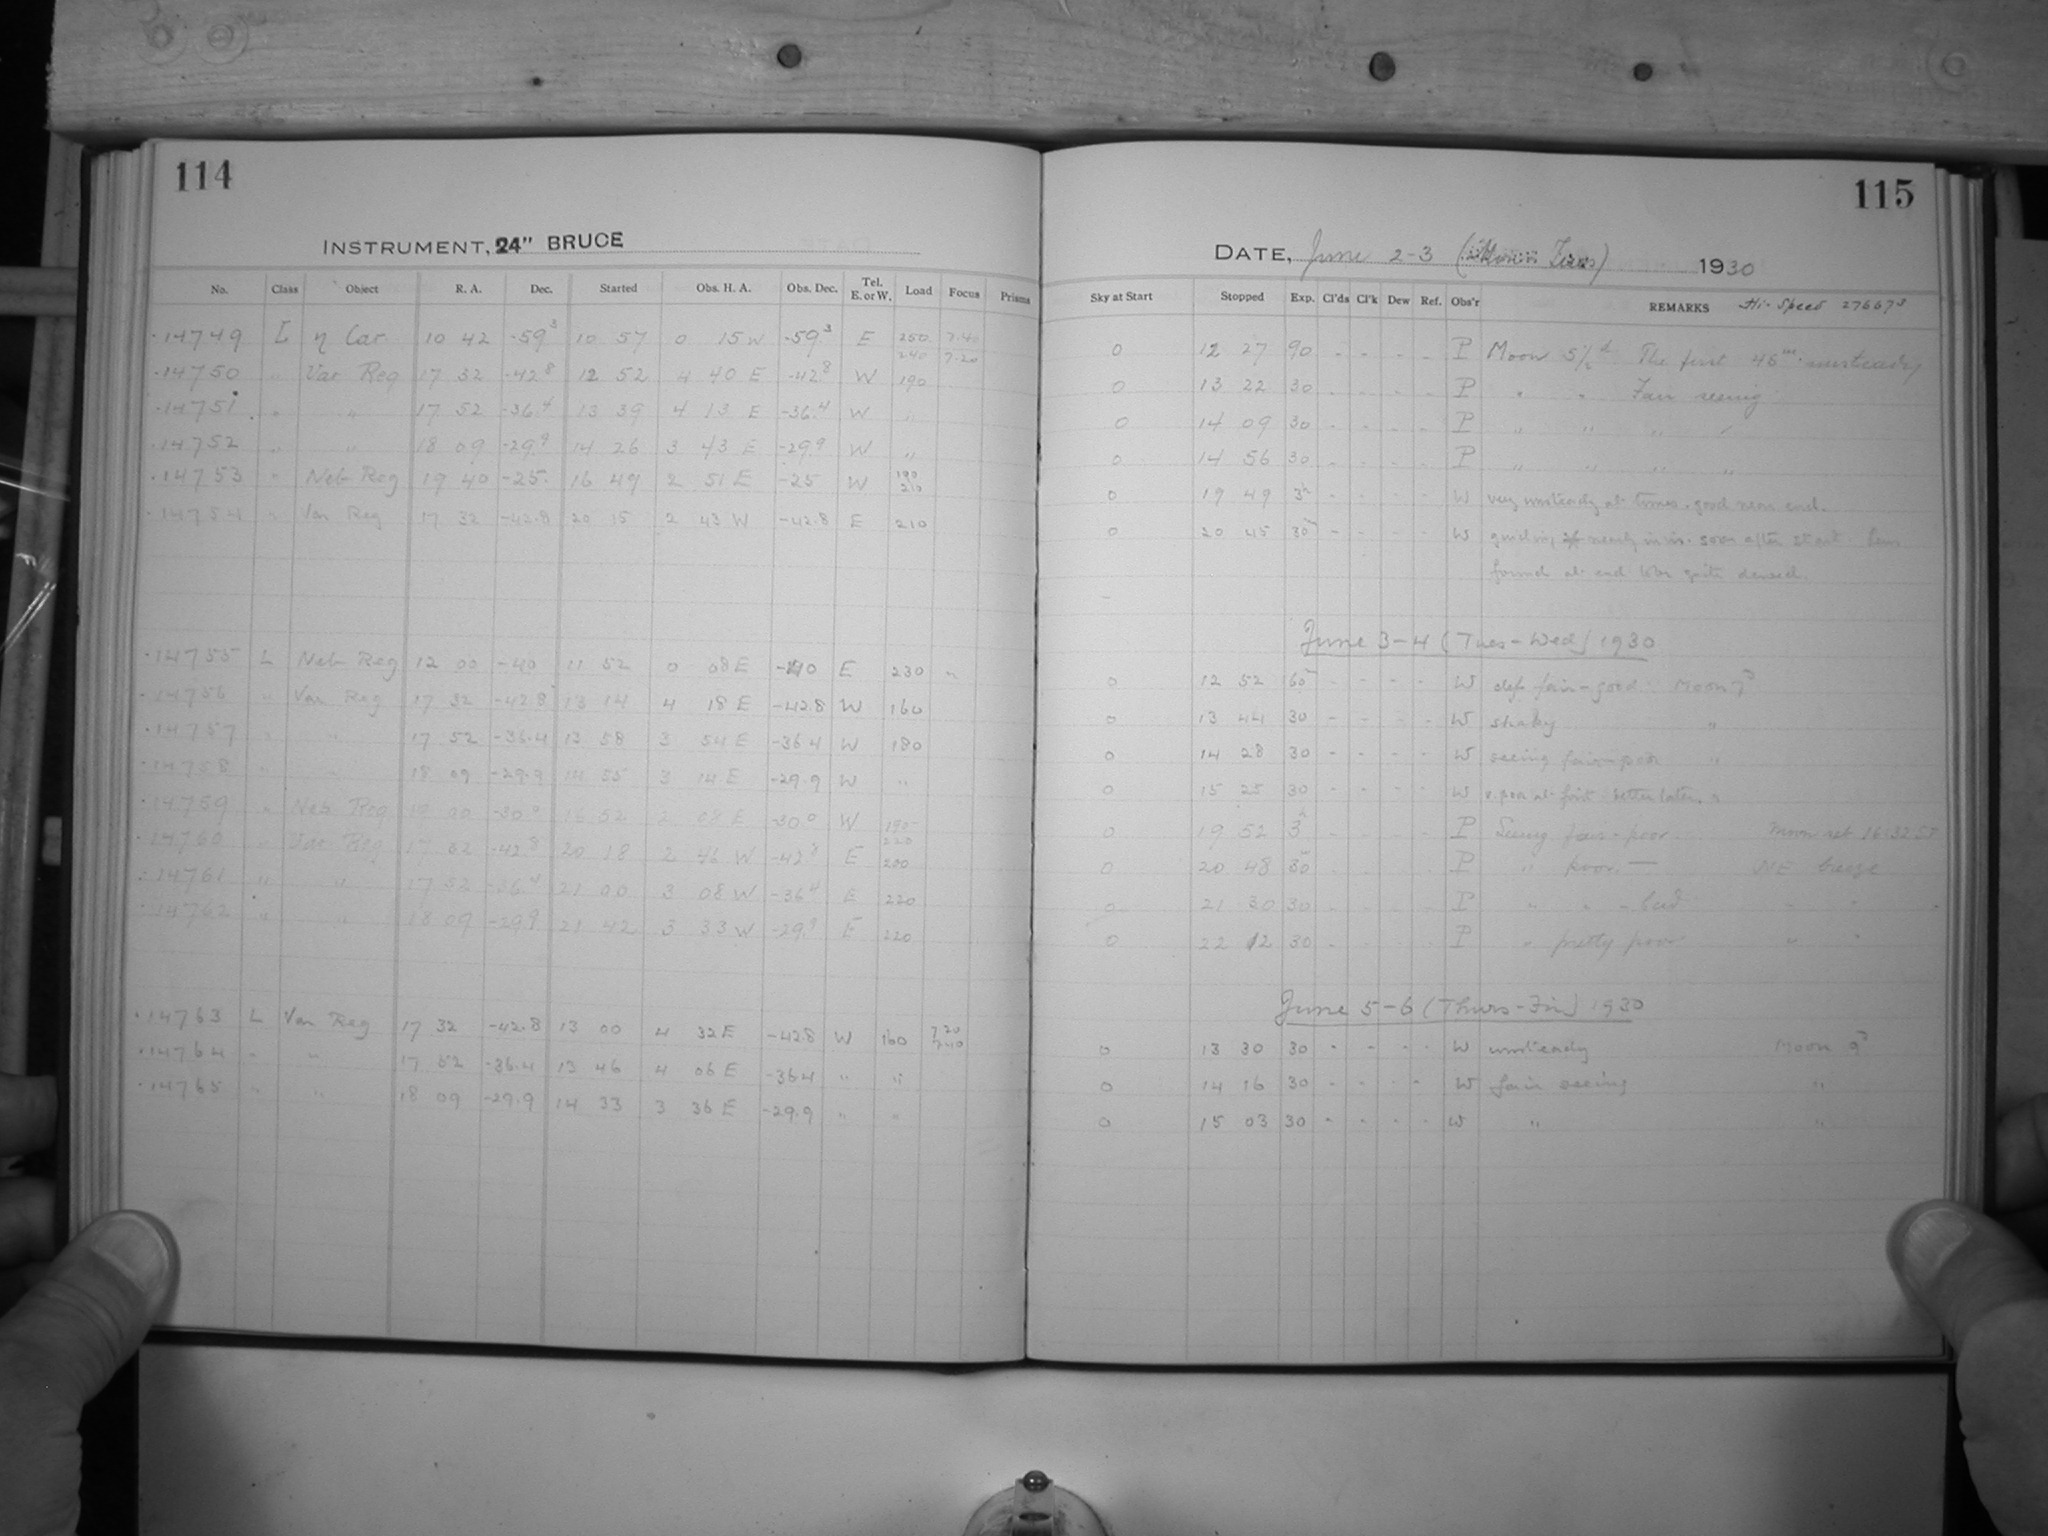 114
INSTRUMENT, 24" BRUCE
No. Class Object R. A. Dec. Started Obs. H. A. Obs. Dec. Tel. E. or W. Load Focus Prisms
14749 L η Car 10 42 -59³ 10 57 0 15 W -59³ E 250 240 7.40 7.20
14750 " Var Reg 17 32 -42⁸ 12 52 4 40 E -42⁸ W 190
14751 " " 17 52 -36.4 13 39 4 13 E -36.4 W "
14752 " " 18 09 -29⁹ 14 26 3 43 E -29⁹ W "
14753 " Neb Reg 19 40 -25 16 49 2 51 E -25 W 190 210
14754 " Var Reg 17 32 -42.8 20 15 2 43 W -42.8 E 210
14755 L Neb Reg 12 00 -40 11 52 0 08 E -40 E 230 "
14756 " Var Reg 17 32 -42.8 13 14 4 18 E -42.8 W 160
14757 " " 17 52 -36.4 13 58 3 54 E -36.4 W 180
14758 " " 18 09 -29.9 14 55 3 14 E -29.9 W "
14759 " Neb Reg 19 00 -30.0 16 52 2 08 E -30.0 W 190 220
14760 " Var Reg 17 32 -42⁸ 20 18 2 46 W -42⁸ E 200
14761 " " 17 52 -36⁴ 21 00 3 08 W -36⁴ E 220
14762 " " 18 09 -29.9 21 42 3 33 W -29.9 E 220
14763 L Var Reg 17 32 -42.8 13 00 4 32 E -42.8 W 160 7.20 7.40
14764 " " 17 52 -36.4 13 46 4 06 E -36.4 " "
14765 " " 18 09 -29.9 14 33 3 36 E -29.9 " "
115
DATE, June 2-3 ( Tues) 1930
Sky at Start Stopped Exp. Cl'ds Cl'k Dew Ref. Obs'r REMARKS Hi-Speed 27667³
0 12 27 90 - - - - P Moon 5½ᵈ The first 45ᵐ unsteady
0 13 22 30 - - - - P " " Fair seeing
0 14 09 30 - - - - P " " " "
0 14 56 30 - - - - P " " " "
0 19 49 3ʰ - - - - W very unsteady at times. good near end.
0 20 45 30ᵐ - - - - W guiding nearly soon after start.
found at end
June 3-4 (Tues-Wed) 1930
0 12 52 60ᵐ - - - - W def fair-good. Moon 7ᵈ
0 13 44 30 - - - - W shaky "
0 14 28 30 - - - - W seeing fair-poor "
0 15 25 30 - - - - W v. poor at first better later. "
0 19 52 3ʰ - - - - P Seeing fair-poor Moon set 16:32 ST
0 20 48 30ᵐ - - - - P " poor. — NE breeze
0 21 30 30 - - - - P " " - bad " "
0 22 12 30 - - - - P " pretty poor " "
June 5-6 (Thurs-Fri) 1930
0 13 30 30 - - - - W unsteady Moon 9ᵈ
0 14 16 30 - - - - W fair seeing "
0 15 03 30 - - - - W " "